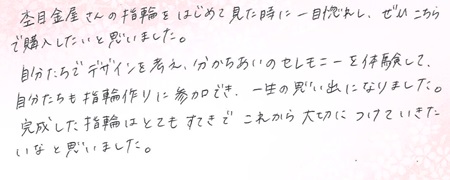 杢目金屋さんの指輪をはじめて見た時に一目惚れし、ぜひこちら
で購入したいと思いました。
自分たちでデザインを考え、分かちあいのセレモニーを体験して、
自分たちも指輪作りに参加でき、一生の思い出になりました。
完成した指輪はとてもすてきで これから大切につけていきた
いなと思いました。